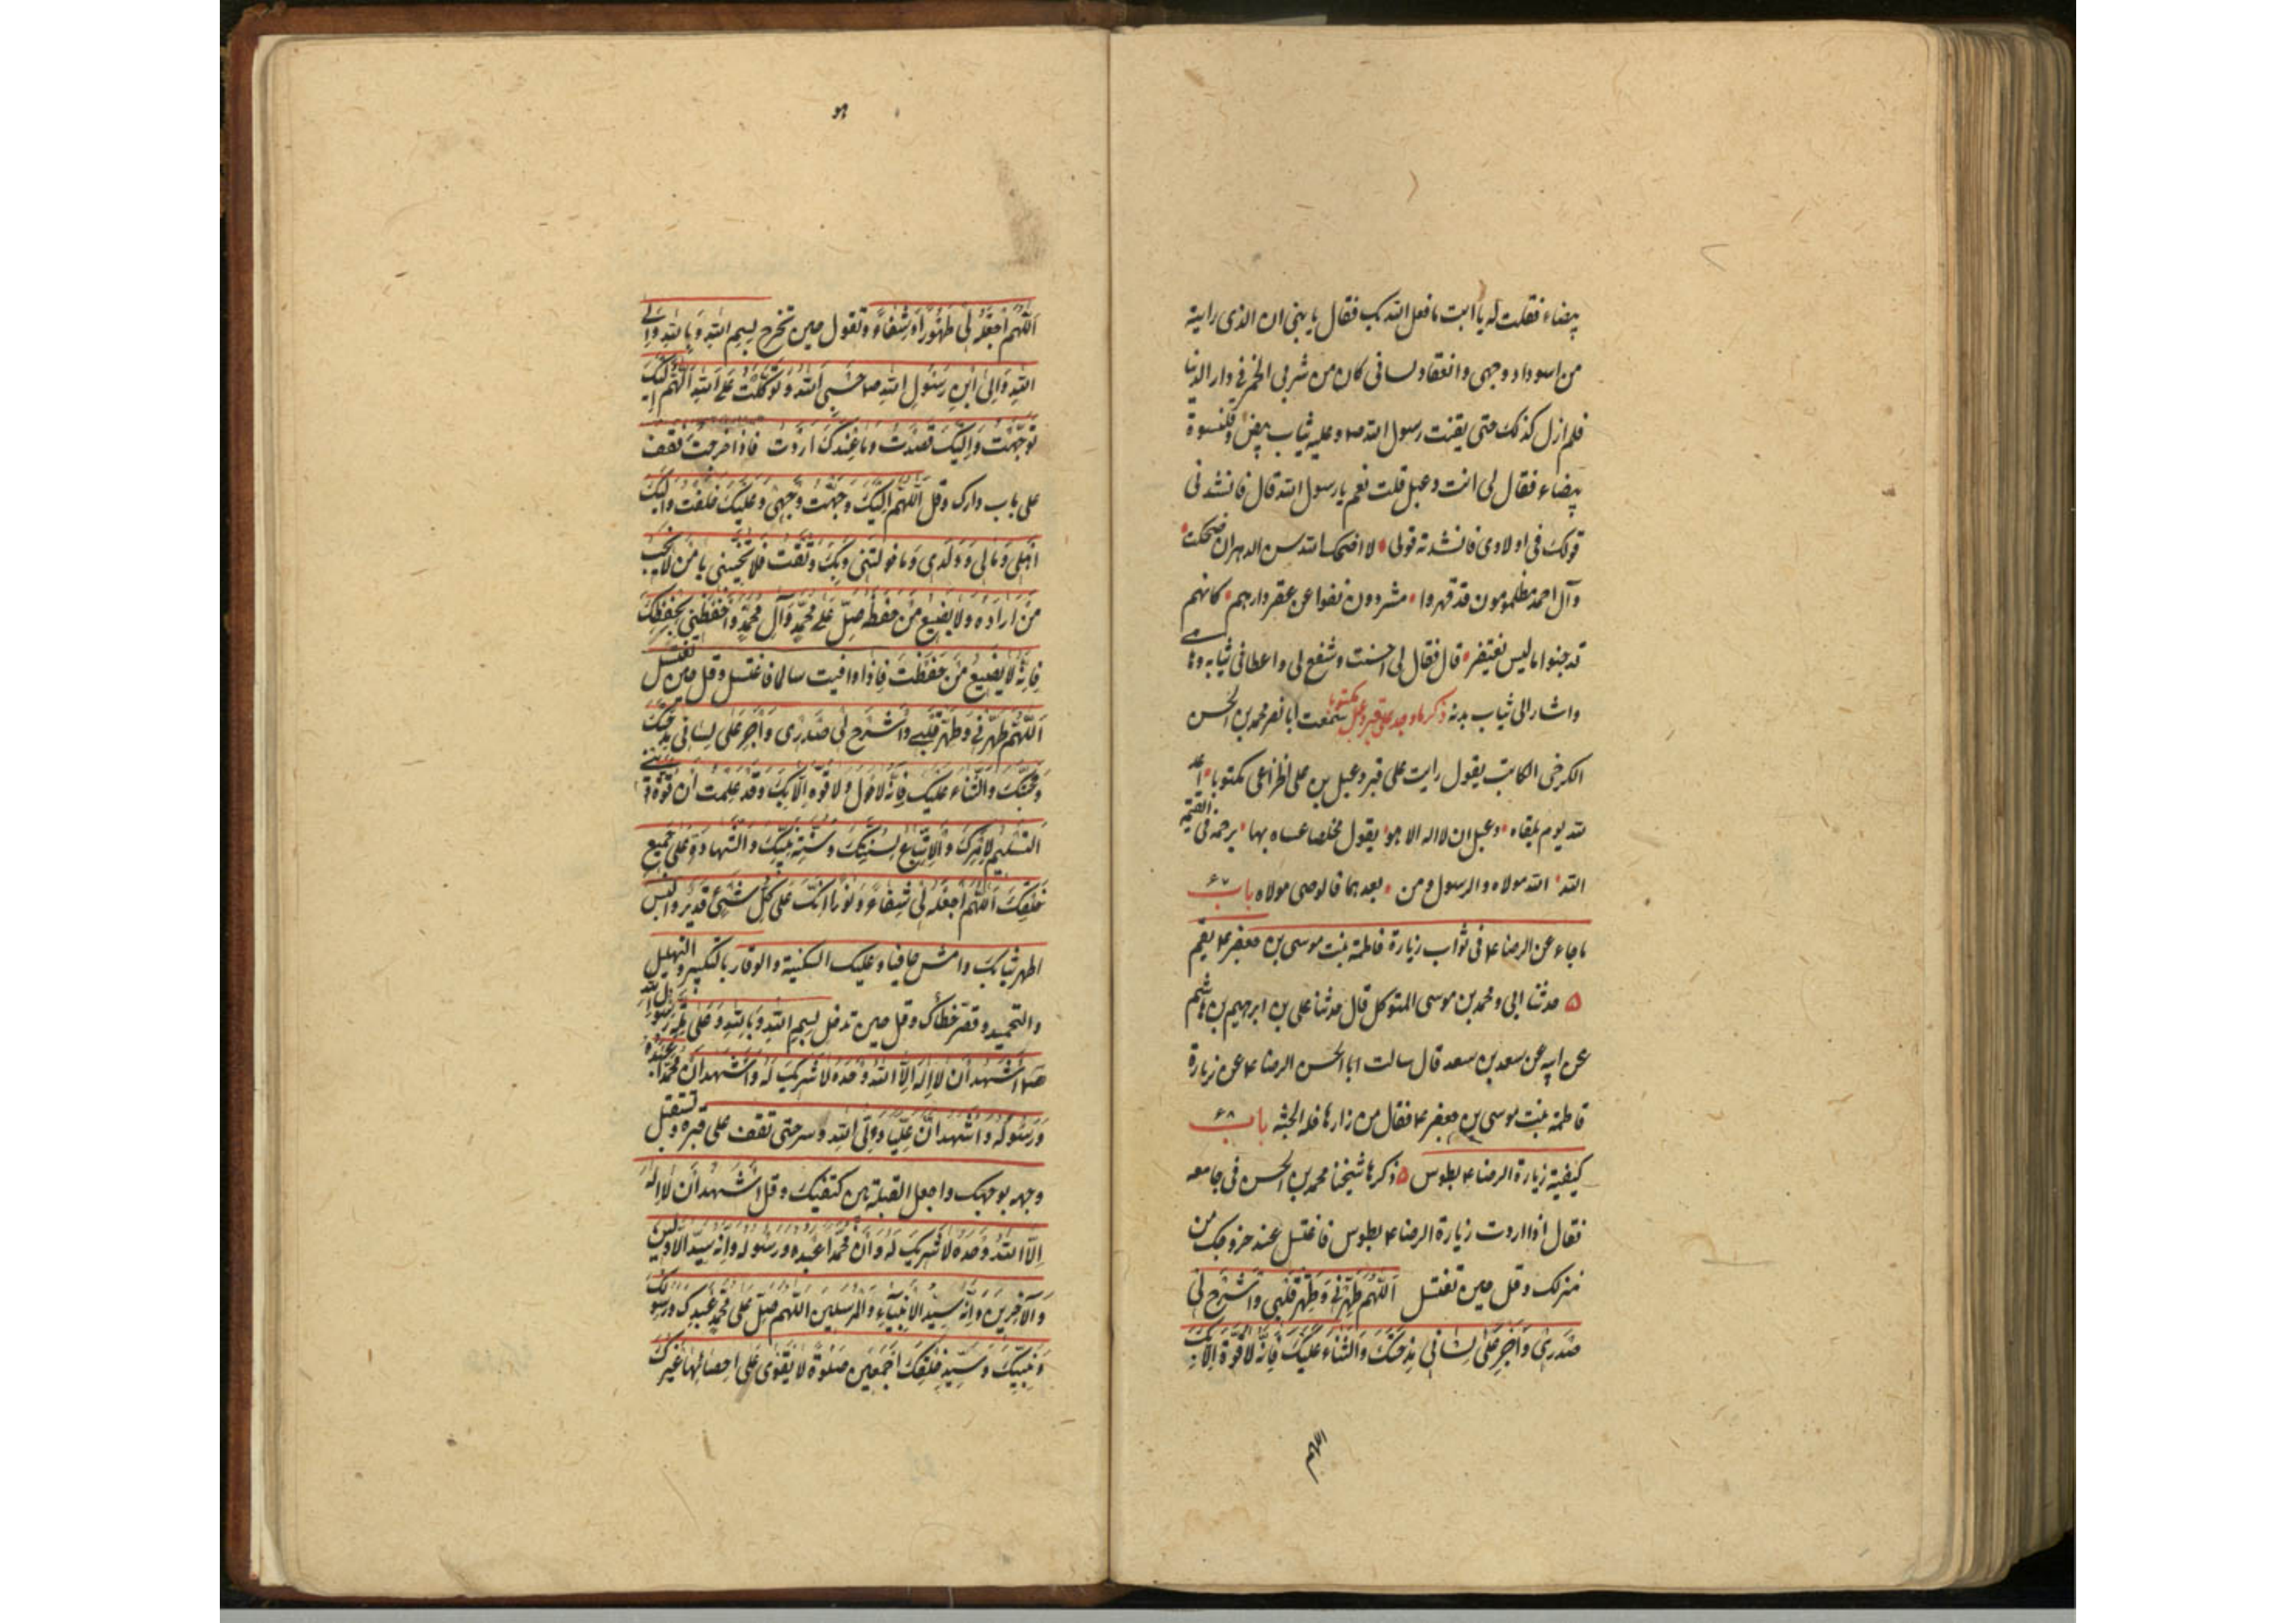 بيضاء فقلت له يا ابت ما فعل الله بك فقال يا بنى ان الذى رايته
من اسوداد وجهى وانعقاد لسانى كان من شربى الخمر فى دار الدنيا
فلم ازل كذلك حتى لقيت رسول الله ص وعليه ثياب بيض وقلنسوة
بيضاء فقال لى انت دعبل قلت نعم يا رسول الله قال فانشدنى
قولك فى اولادى فانشدته قولى لا اضحك الله سن الدهر ان ضحكت
وآل احمد مظلومون قد قهروا مشردون نفوا عن عقر دارهم كانهم
قد جنوا ما ليس يغتفر قال فقال لى احسنت وشفع لى واعطانى ثيابه وها هى
واشار الى ثياب بدنه ذكر ما وجد على قبر دعبل مكتوبا سمعت ابا نصر محمد بن الحسن
الكرخى الكاتب يقول رايت على قبر دعبل بن على الخزاعى مكتوبا اعد
لله يوم يلقاه دعبل ان لا اله الا هو يقول مخلصا عساه بها يرحمه فى القيمة
الله الله مولاه والرسول ومن بعدهما فالوصى مولاه باب ۶۷
ما جاء عن الرضا ع فى ثواب زيارة فاطمة بنت موسى بن جعفر ع بقم
۵ حدثنا ابى ومحمد بن موسى المتوكل قال حدثنا على بن ابرهيم بن هاشم
عن ابيه عن سعد بن سعد قال سالت ابا الحسن الرضا ع عن زيارة
فاطمة بنت موسى بن جعفر ع فقال من زارها فله الجنة باب ۶۸
كيفية زيارة الرضا ع بطوس ۵ ذكرها شيخنا محمد بن الحسن فى جامعه
فقال اذا اردت زيارة الرضا ع بطوس فاغتسل عند خروجك من
منزلك وقل حين تغتسل اَللّهُمَّ طَهِّرْنِى وَطَهِّرْ قَلْبِى وَاشْرَحْ لِى
صَدْرِى وَاَجْرِ عَلىٰ لِسٰانِى مِدْحَتَكَ وَالثَّنٰاءَ عَلَيْكَ فَاِنَّهُ لٰا قُوَّةَ اِلّٰا بِكَ
اللهم
هو
اَللّهُمَّ اجْعَلْهُ لِى طَهُورًا وَشِفٰاءً وتقول حين تخرج بِسْمِ اللهِ وَبِاللهِ وَاِلَى
اللهِ وَاِلَى ابْنِ رَسُولِ اللهِ ص حَسْبِىَ اللهُ وَتَوَكَّلْتُ عَلَى اللهِ اَللّهُمَّ اِلَيْكَ
تَوَجَّهْتُ وَاِلَيْكَ قَصَدْتُ وَمٰا عِنْدَكَ اَرَدْتُ فاذا خرجت فقف
على باب دارك وقل اَللّهُمَّ اِلَيْكَ وَجَّهْتُ وَجْهِى وَعَلَيْكَ خَلَّفْتُ
اَهْلِى وَمٰالِى وَوَلَدِى وَمٰا خَوَّلْتَنِى وَبِكَ وَثِقْتُ فَلٰا تُخَيِّبْنِى يٰا مَنْ لٰا يُخَيِّبُ
مَنْ اَرٰادَهُ وَلٰا يُضَيِّعُ مَنْ حَفِظَهُ صَلِّ عَلىٰ مُحَمَّدٍ وَآلِ مُحَمَّدٍ وَاحْفَظْنِى بِحِفْظِكَ
فَاِنَّهُ لٰا يَضِيعُ مَنْ حَفِظْتَ فاذا وافيت سالما فاغتسل وقل حين تغتسل
اَللّهُمَّ طَهِّرْنِى وَطَهِّرْ قَلْبِى وَاشْرَحْ لِى صَدْرِى وَاَجْرِ عَلىٰ لِسٰانِى مِدْحَتَكَ
وَمَحَبَّتَكَ وَالثَّنٰاءَ عَلَيْكَ فَاِنَّهُ لٰا حَوْلَ وَلٰا قُوَّةَ اِلّٰا بِكَ وَقَدْ عَلِمْتُ اَنَّ قُوَّةَ دينى
التَّسْلِيمُ لِاَمْرِكَ وَالْاِتِّبٰاعُ لِسُنَّةِ نَبِيِّكَ وَالشَّهٰادَةُ عَلىٰ جَمِيعِ
خَلْقِكَ اَللّهُمَّ اجْعَلْهُ لِى شِفٰاءً وَنُورًا اِنَّكَ عَلىٰ كُلِّ شَىْءٍ قَدِيرٌ والبس
اطهر ثيابك وامش حافيا وعليك السكينة والوقار بالتكبير والتهليل
والتحميد وقصر خطاك وقل حين تدخل بِسْمِ اللهِ وَبِاللهِ وَعَلىٰ مِلَّةِ رَسُولِ اللهِ
ص اَشْهَدُ اَنْ لٰا اِلهَ اِلَّا اللهُ وَحْدَهُ لٰا شَرِيكَ لَهُ وَاَشْهَدُ اَنَّ مُحَمَّدًا عَبْدُهُ
وَرَسُولُهُ وَاَشْهَدُ اَنَّ عَلِيًّا وَلِىُّ اللهِ وسر حتى تقف على قبره وتستقبل
وجهه بوجهك واجعل القبلة بين كتفيك وقل اَشْهَدُ اَنْ لٰا اِلهَ
اِلَّا اللهُ وَحْدَهُ لٰا شَرِيكَ لَهُ وَاَنَّ مُحَمَّدًا عَبْدُهُ وَرَسُولُهُ وَاَنَّهُ سَيِّدُ الْاَوَّلِينَ
وَالْآخِرِينَ وَاَنَّهُ سَيِّدُ الْاَنْبِيٰاءِ وَالْمُرْسَلِينَ اَللّهُمَّ صَلِّ عَلىٰ مُحَمَّدٍ عَبْدِكَ وَرَسُولِكَ
وَنَبِيِّكَ وَسَيِّدِ خَلْقِكَ اَجْمَعِينَ صَلٰوةً لٰا يَقْوىٰ عَلىٰ اِحْصٰائِهٰا غَيْرُكَ